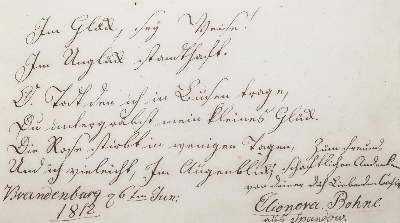 Im Glük, sey Weise!
Im Unglük standhaft.
O. Todt den ich in Busen trage,
Du untergräbst mein kleines Glük.
Die Rose stirbt in wenigen Tagen,
Und ich vieleicht, Im Augenblik,
Zum freund
schaftlichen Andenken
von deiner dich Liebenden
Brandenburg 26ten Jun:
1812
Eleonora. Bohne
aus Spandow.